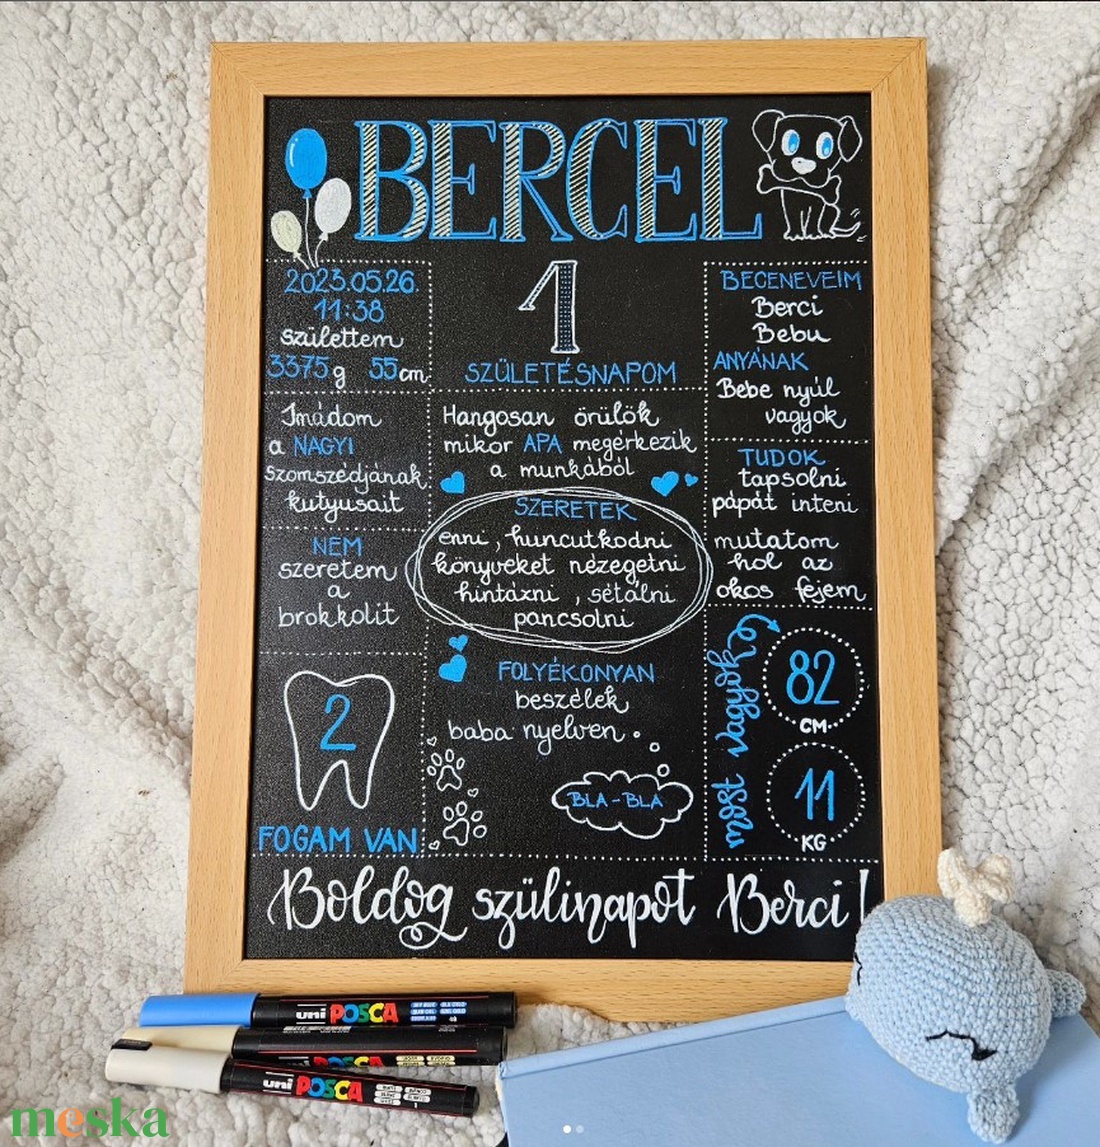 BERCEL
2023.05.26.
11:38
születtem
3375g 55cm
1
SZÜLETÉSNAPOM
BECENEVEIM
Berci
Bebu
ANYÁNAK
Bebe nyúl
vagyok
Imádom
a NAGYI
szomszédjának
kutyusait
Hangosan örülök
mikor APA megérkezik
a munkából
TUDOK
tapsolni
pápát inteni
mutatom
hol az
okos fejem
NEM
szeretem
a
brokkolit
SZERETEK
enni, huncutkodni
könyveket nézegetni
hintázni, sétálni
pancsolni
2
FOGAM VAN
FOLYÉKONYAN
beszélek
baba nyelven.
BLA-BLA
most vagyok
82
CM
11
KG
Boldog szülinapot Berci!
uni POSCA
uni POSCA
uni POSCA
meska